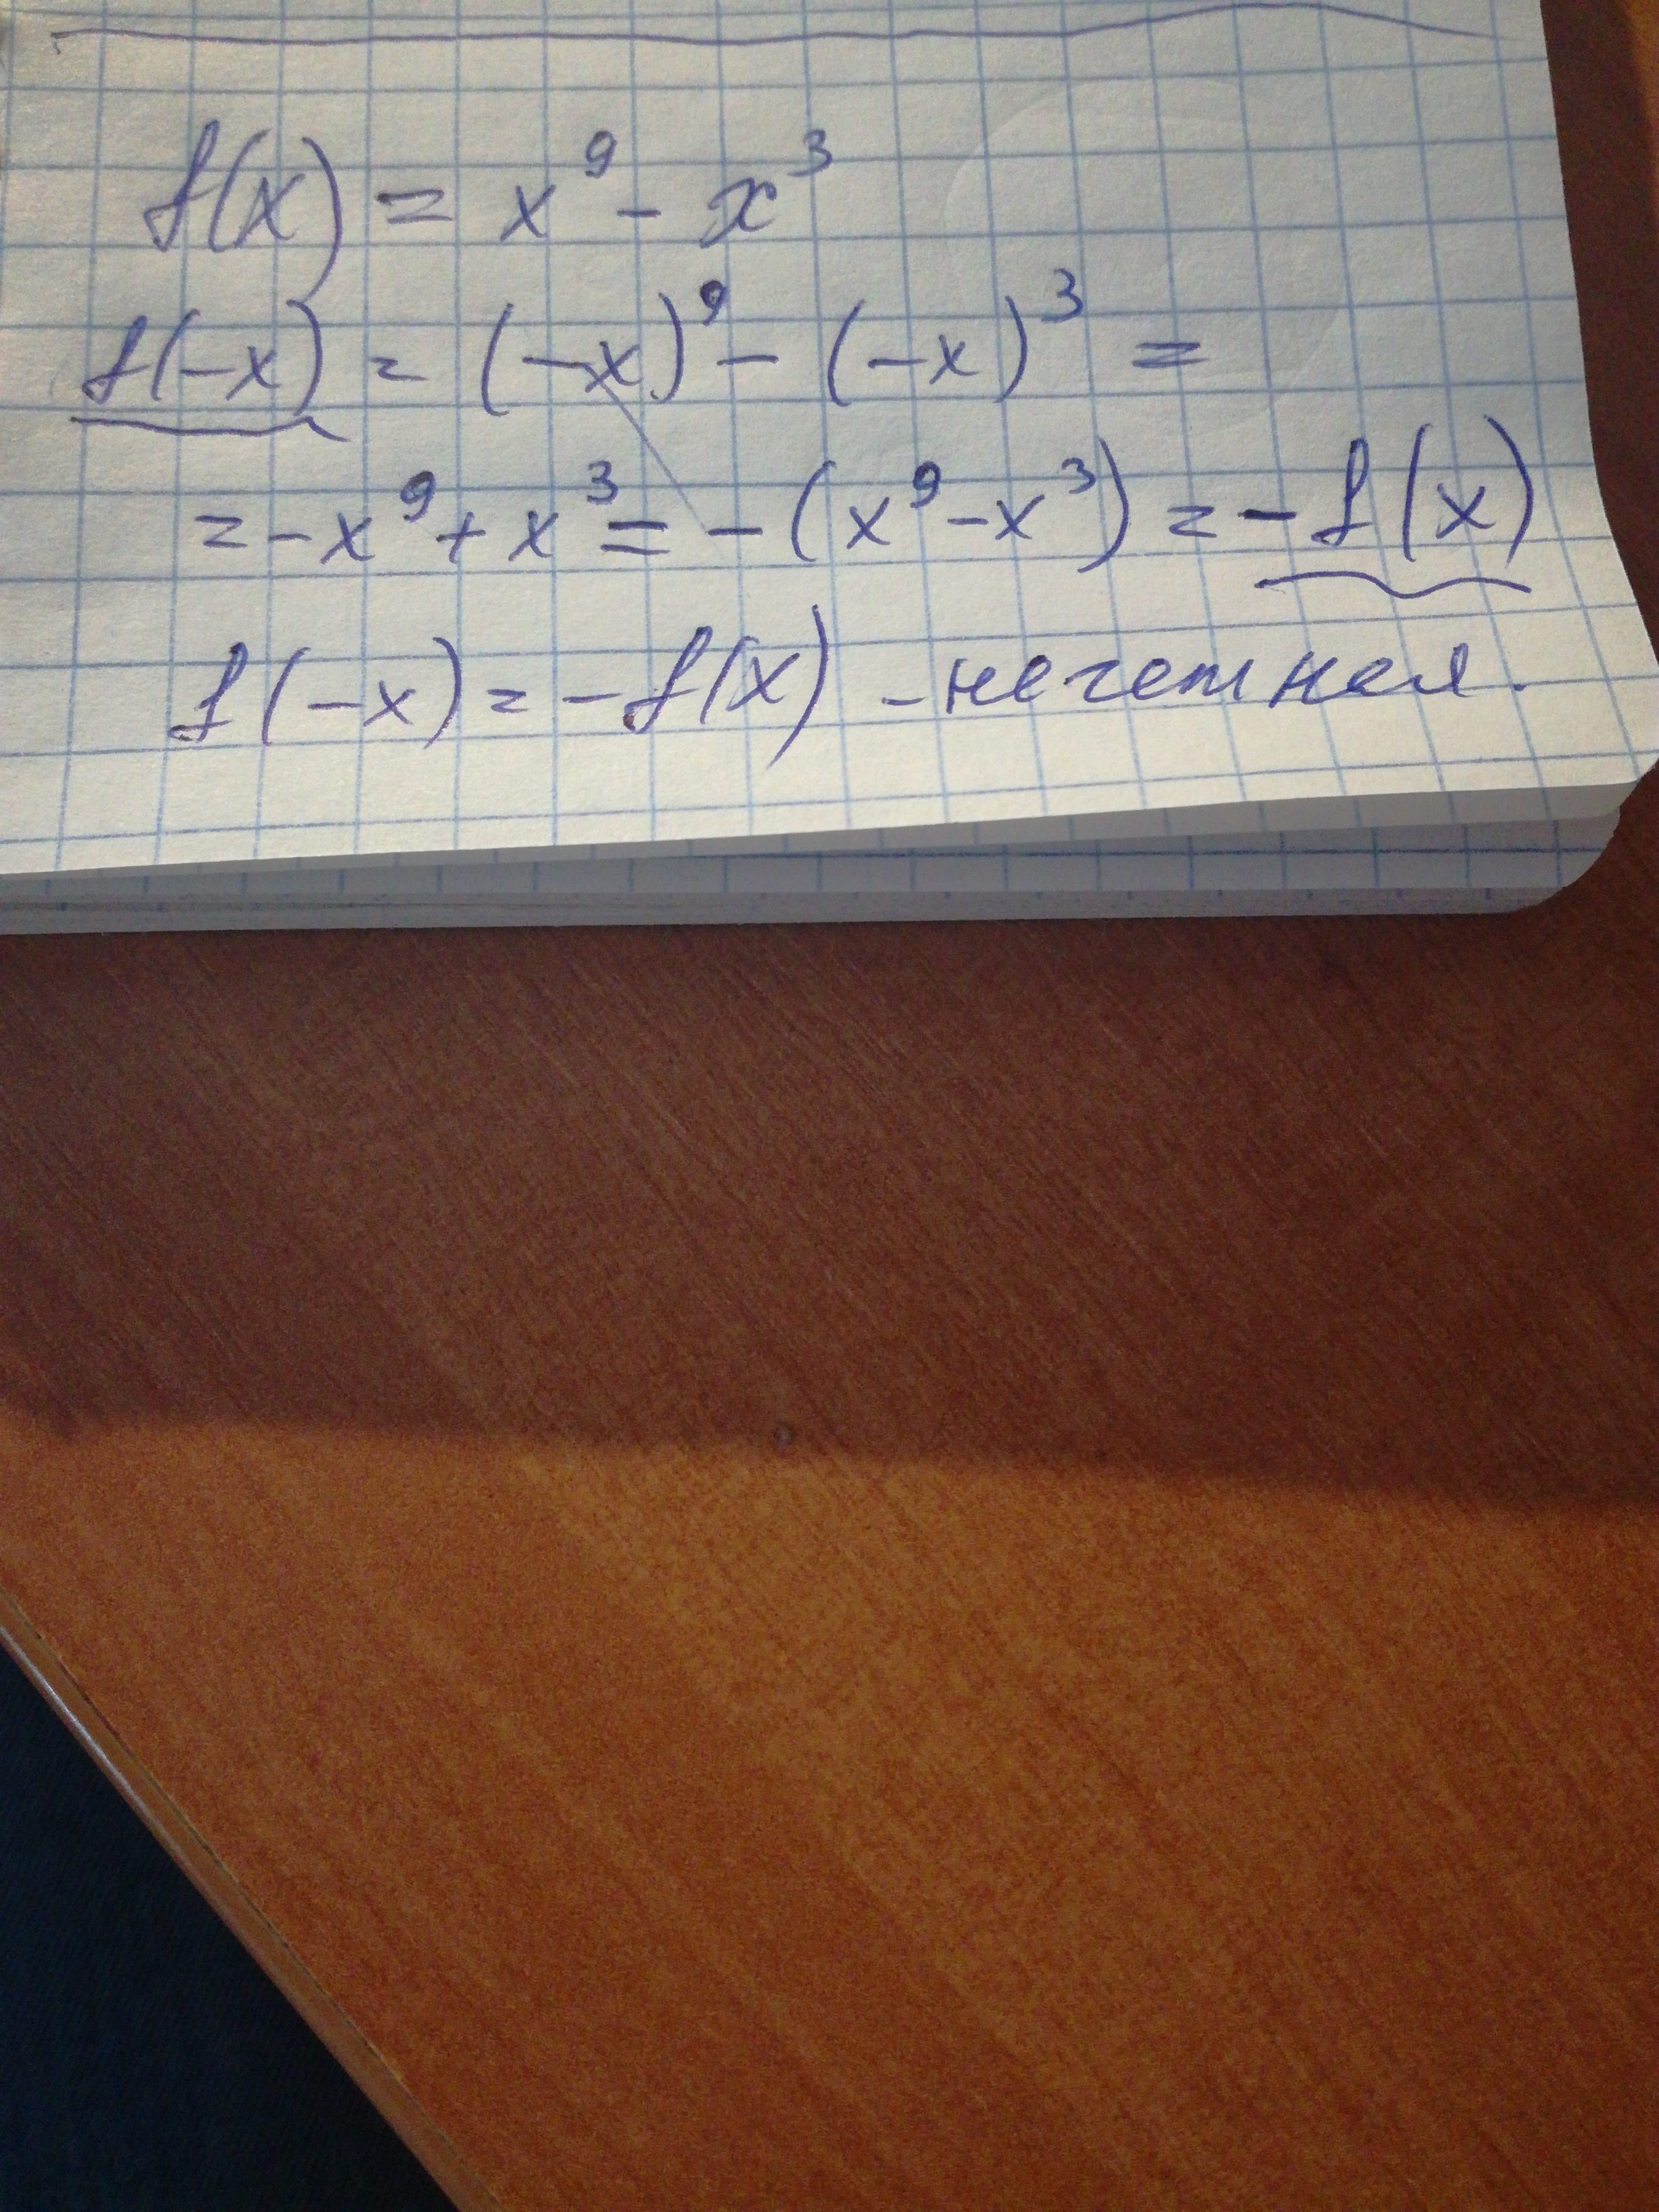 f(x) = x⁹ - x³
f(-x) = (-x)⁹ - (-x)³ =
= -x⁹ + x³ = -(x⁹ - x³) = -f(x)
f(-x) = -f(x) - нечетная.